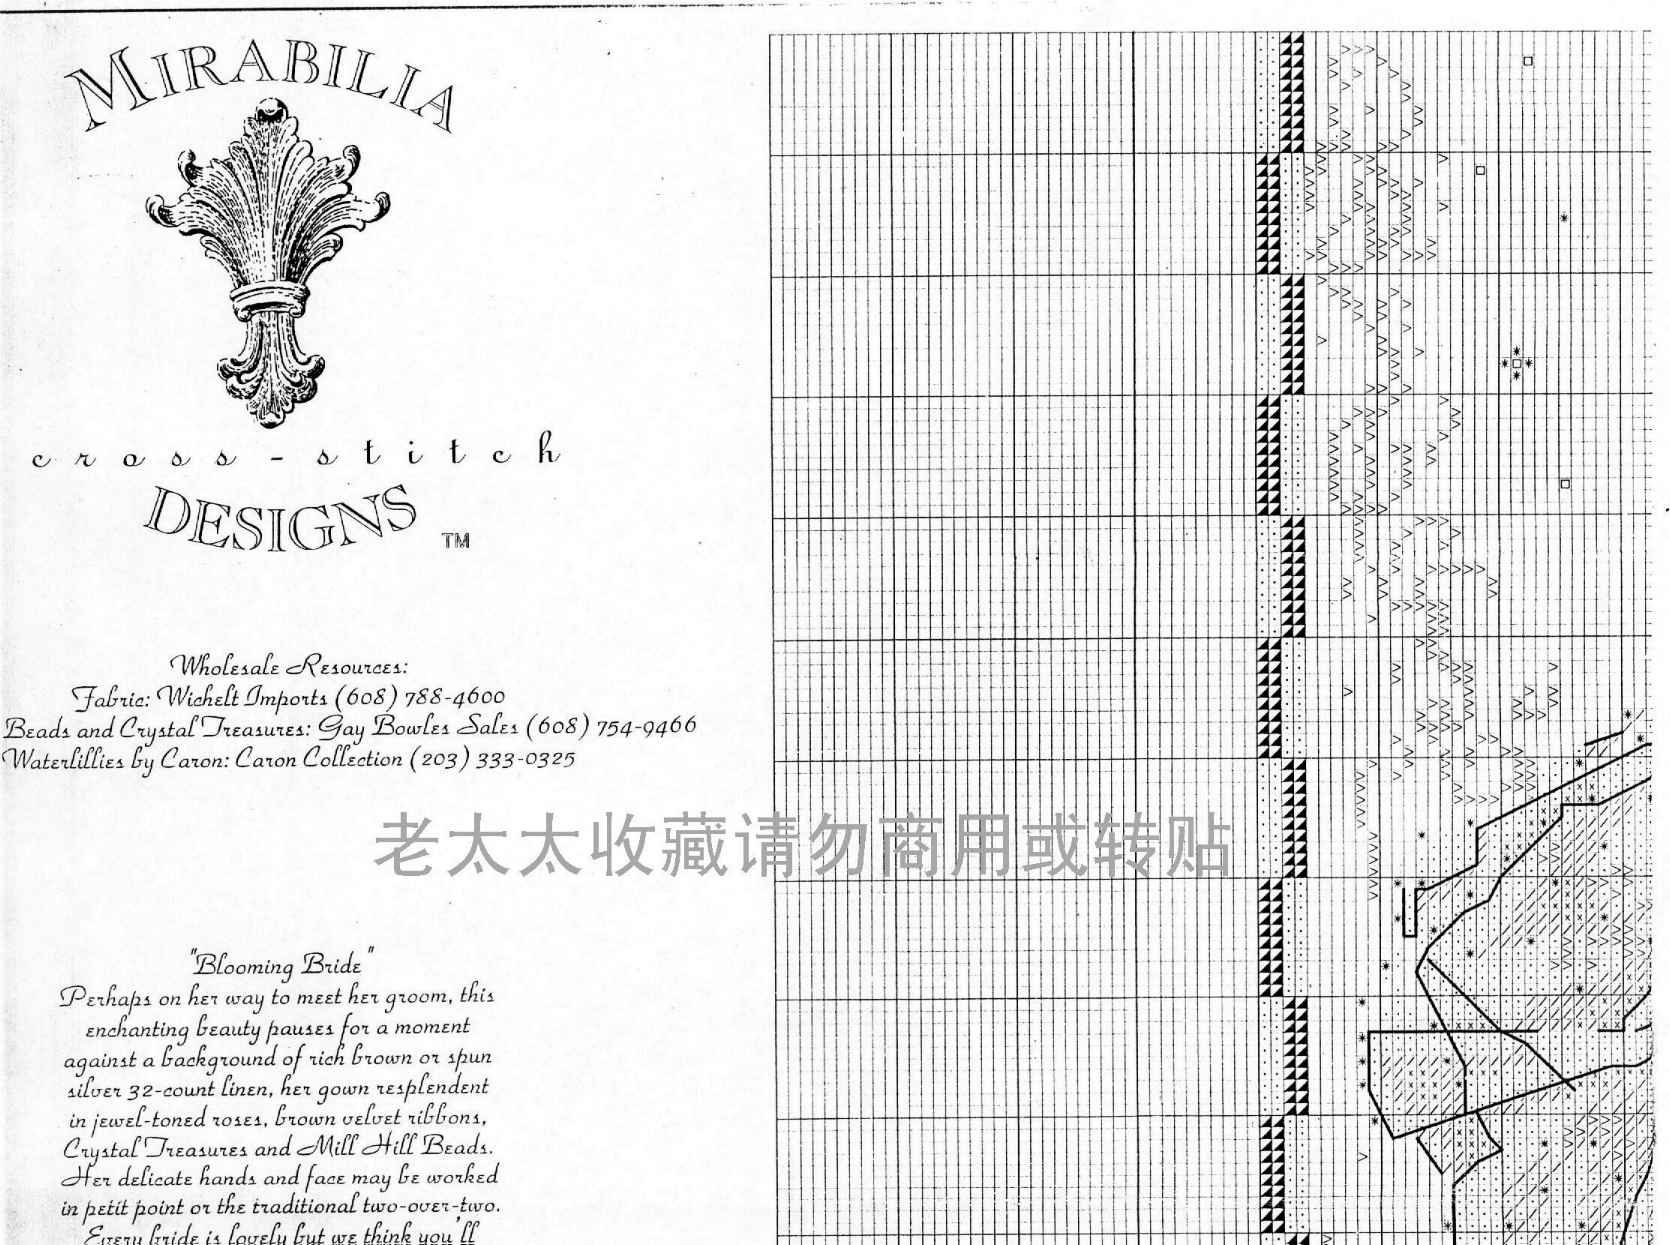 MIRABILIA
cross-stitch
DESIGNS TM
Wholesale Resources:
Fabric: Wichelt Imports (608) 788-4600
Beads and Crystal Treasures: Gay Bowles Sales (608) 754-9466
Waterlillies by Caron: Caron Collection (203) 333-0325
老太太收藏请勿商用或转贴
"Blooming Bride"
Perhaps on her way to meet her groom, this
enchanting beauty pauses for a moment
against a background of rich brown or spun
silver 32-count linen, her gown resplendent
in jewel-toned roses, brown velvet ribbons,
Crystal Treasures and Mill Hill Beads.
Her delicate hands and face may be worked
in petit point or the traditional two-over-two.
Every bride is lovely but we think you'll